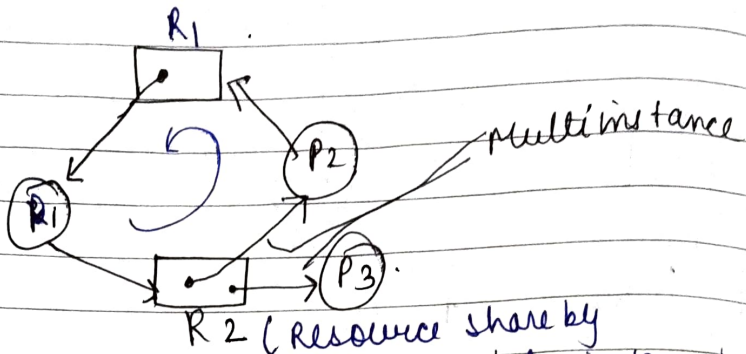 R1
P2
Multiinstance
P1
P3.
R2 (Resource share by